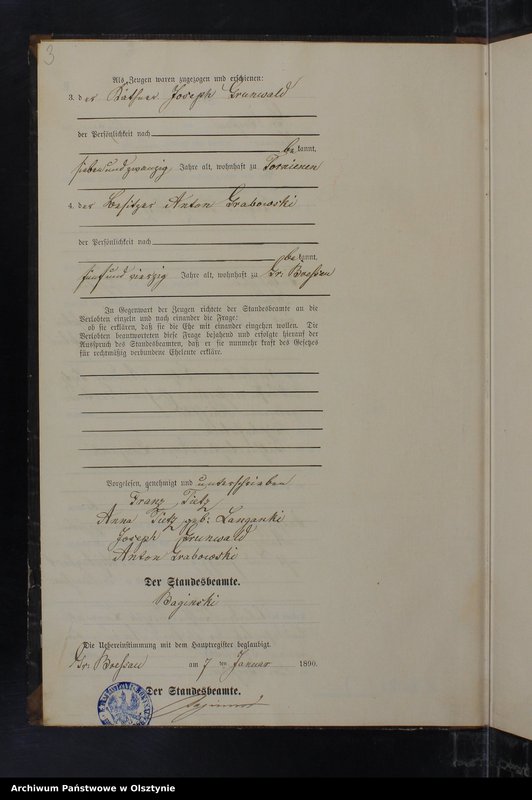 3
Als Zeugen waren zugezogen und erschienen:
3. der Käthner Joseph Grunwald
der Persönlichkeit nach
be kannt,
siebenundzwanzig Jahre alt, wohnhaft zu Tornienen
4. der Besitzer Anton Grabowski
der Persönlichkeit nach
be kannt,
fünfundvierzig Jahre alt, wohnhaft zu Gr. Boessau
In Gegenwart der Zeugen richtete der Standesbeamte an die
Verlobten einzeln und nach einander die Frage:
ob sie erklären, daß sie die Ehe mit einander eingehen wollen. Die
Verlobten beantworteten diese Frage bejahend und erfolgte hierauf der
Ausspruch des Standesbeamten, daß er sie nunmehr kraft des Gesetzes
für rechtmäßig verbundene Eheleute erkläre.
Vorgelesen, genehmigt und unterschrieben
Franz Tietz
Anna Tietz geb: Langanki
Joseph Grunwald
Anton Grabowski
Der Standesbeamte.
Baginski
Die Uebereinstimmung mit dem Hauptregister beglaubigt.
Gr. Boessau am 7 ten Januar 1890.
Der Standesbeamte.
Archiwum Państwowe w Olsztynie